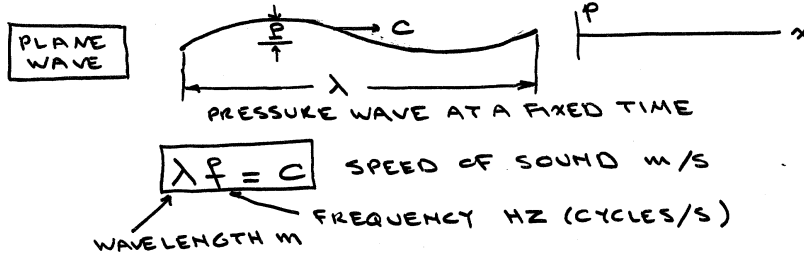 PLANE WAVE
P
C
P
x
λ
PRESSURE WAVE AT A FIXED TIME
λ f = C SPEED OF SOUND m/s
FREQUENCY HZ (CYCLES/S)
WAVELENGTH m